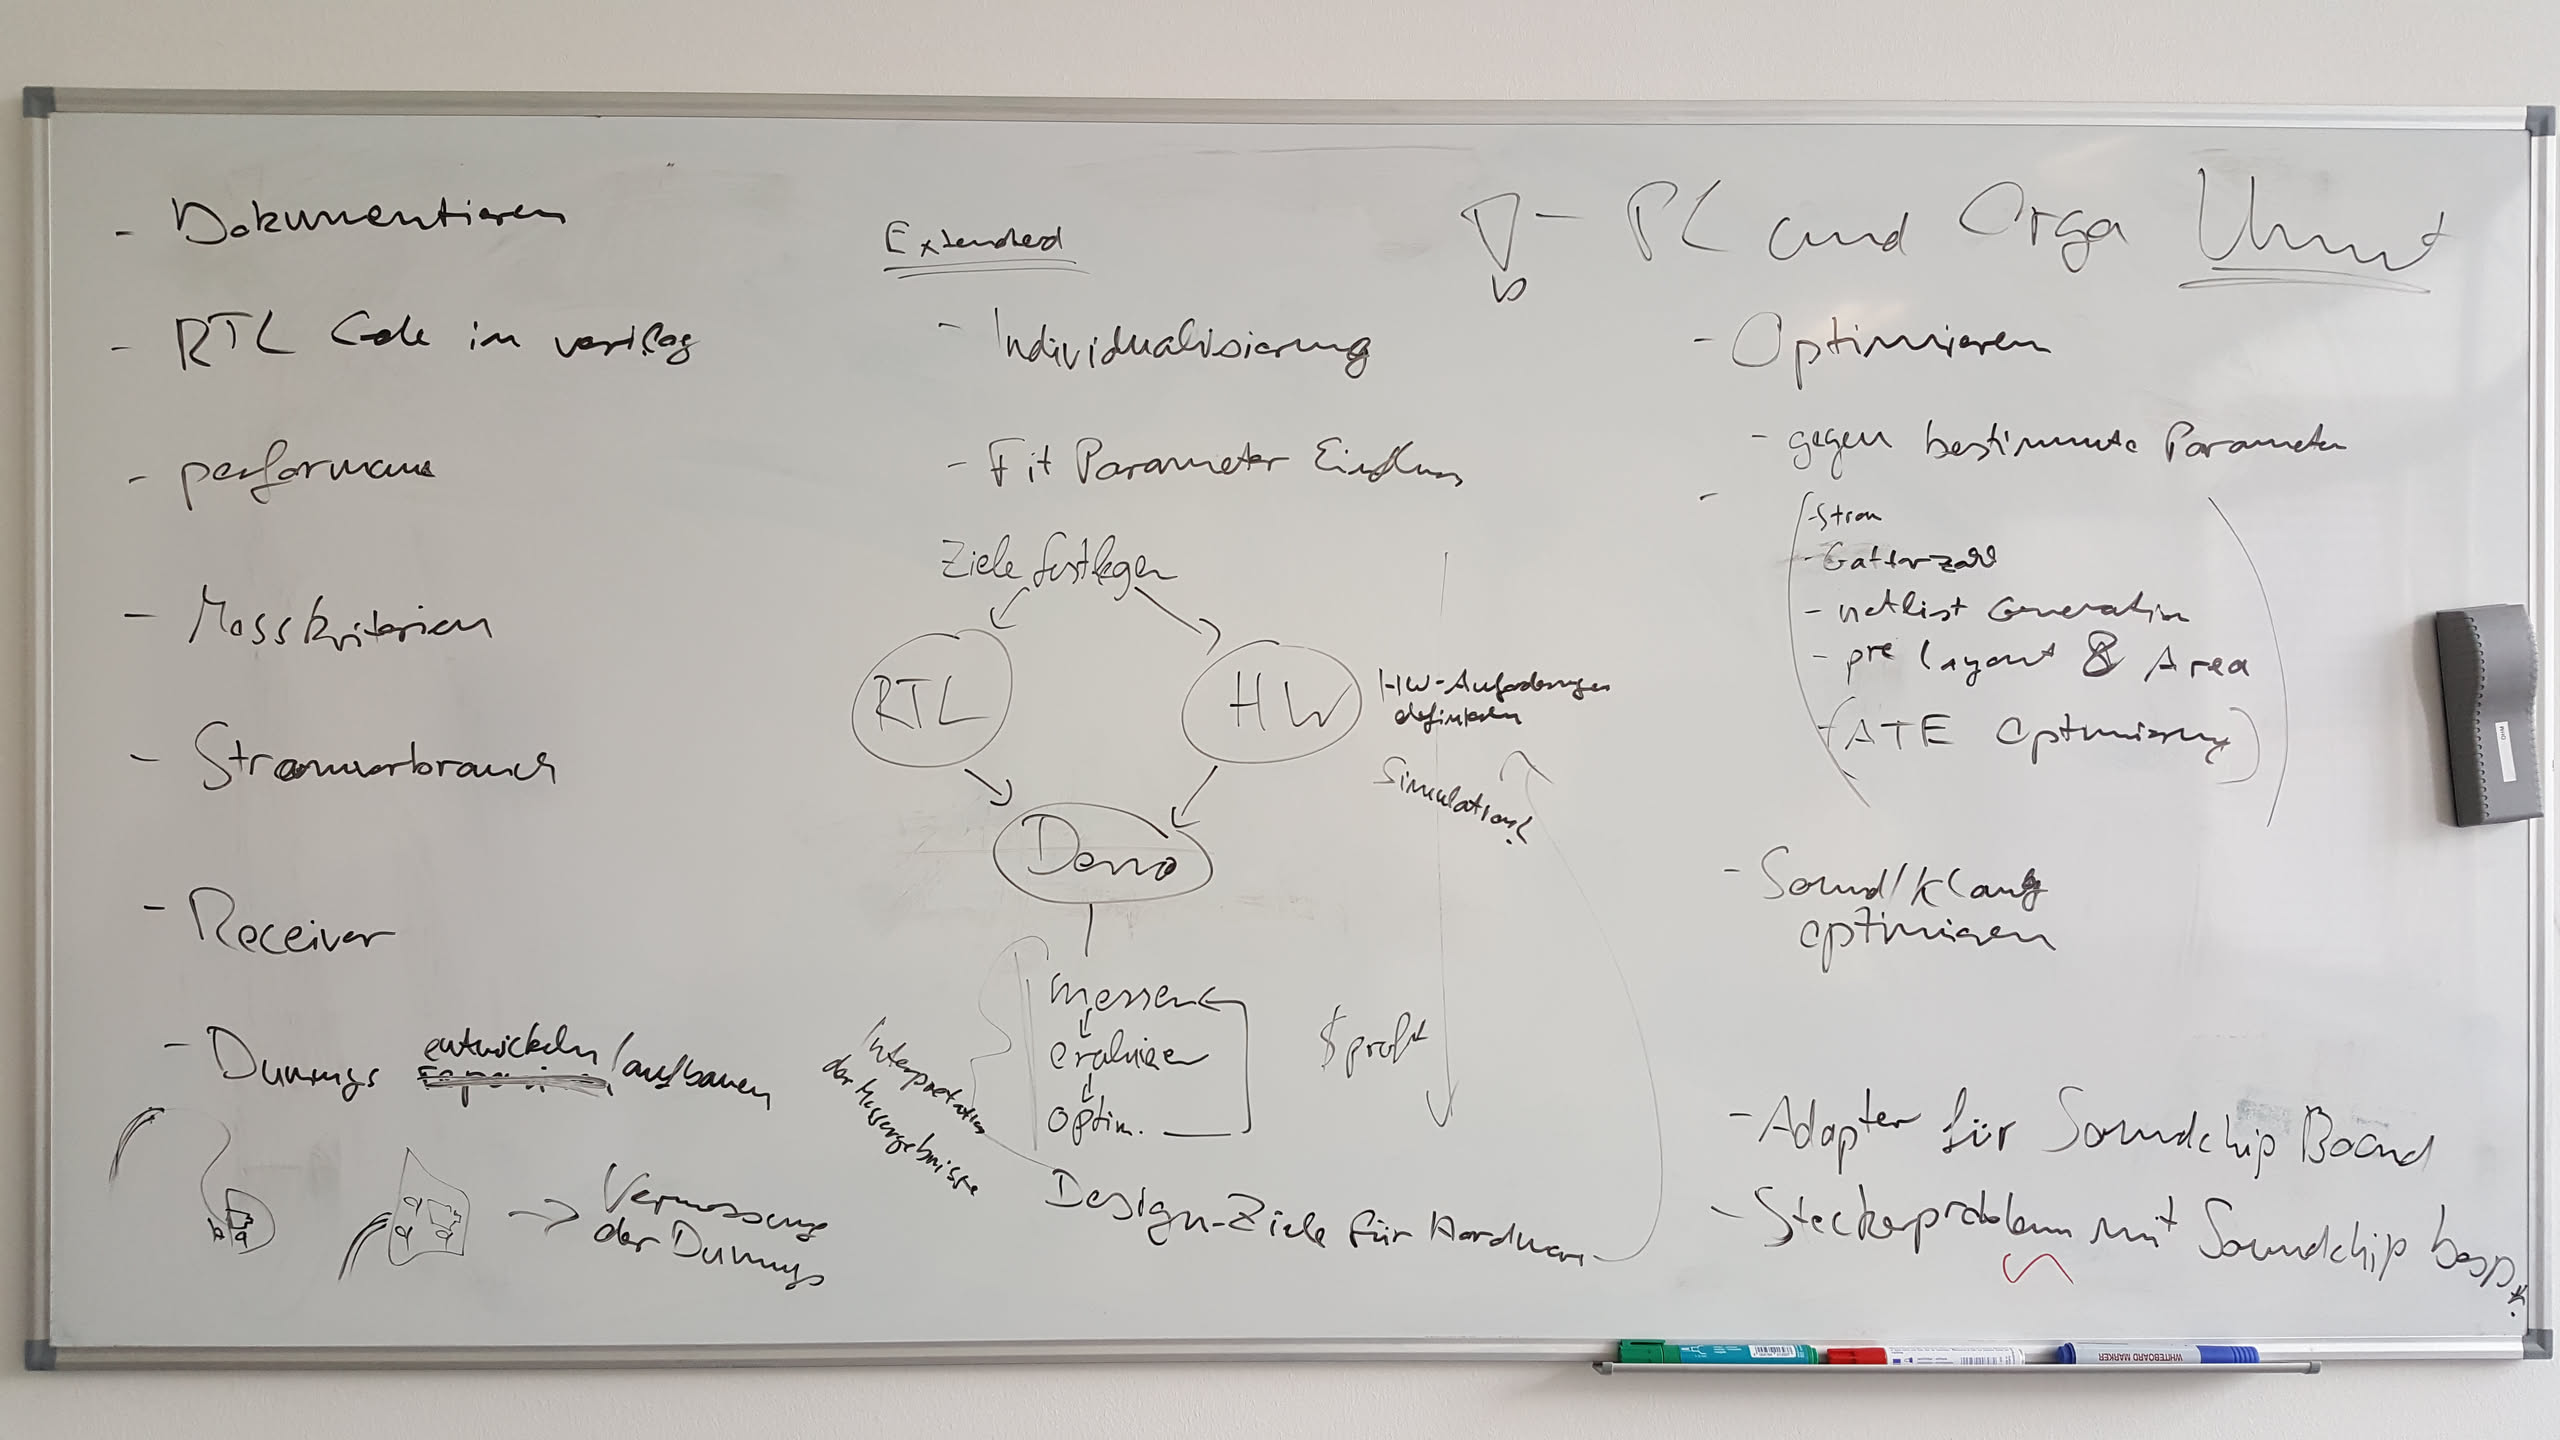 - Dokumentieren
- RTL Code in verilog
- performance
- Messkriterien
- Stromverbrauch
- Receiver
- Dummys entwickeln/aufbauen
→ Vermessung
der Dummys
Extended
- Individualisierung
- Fit Parameter Einfluss
Ziele festlegen
RTL
HW
HW-Anforderungen
definieren
Simulation?
Demo
messen
evaluieren
optim.
$ profit
Interpretation
der Messergebnisse
Design-Ziele für Hardware
- PL und Orga
- Optimieren
- gegen bestimmte Parameter
- Strom
- Gatterzahl
- netlist Generation
- pre layout & Area
- (ATE Optimierung)
- Sound/Klang
optimieren
- Adapter für Soundchip Board
- Steckerproblem mit Soundchip besp.
WHITEBOARD MARKER